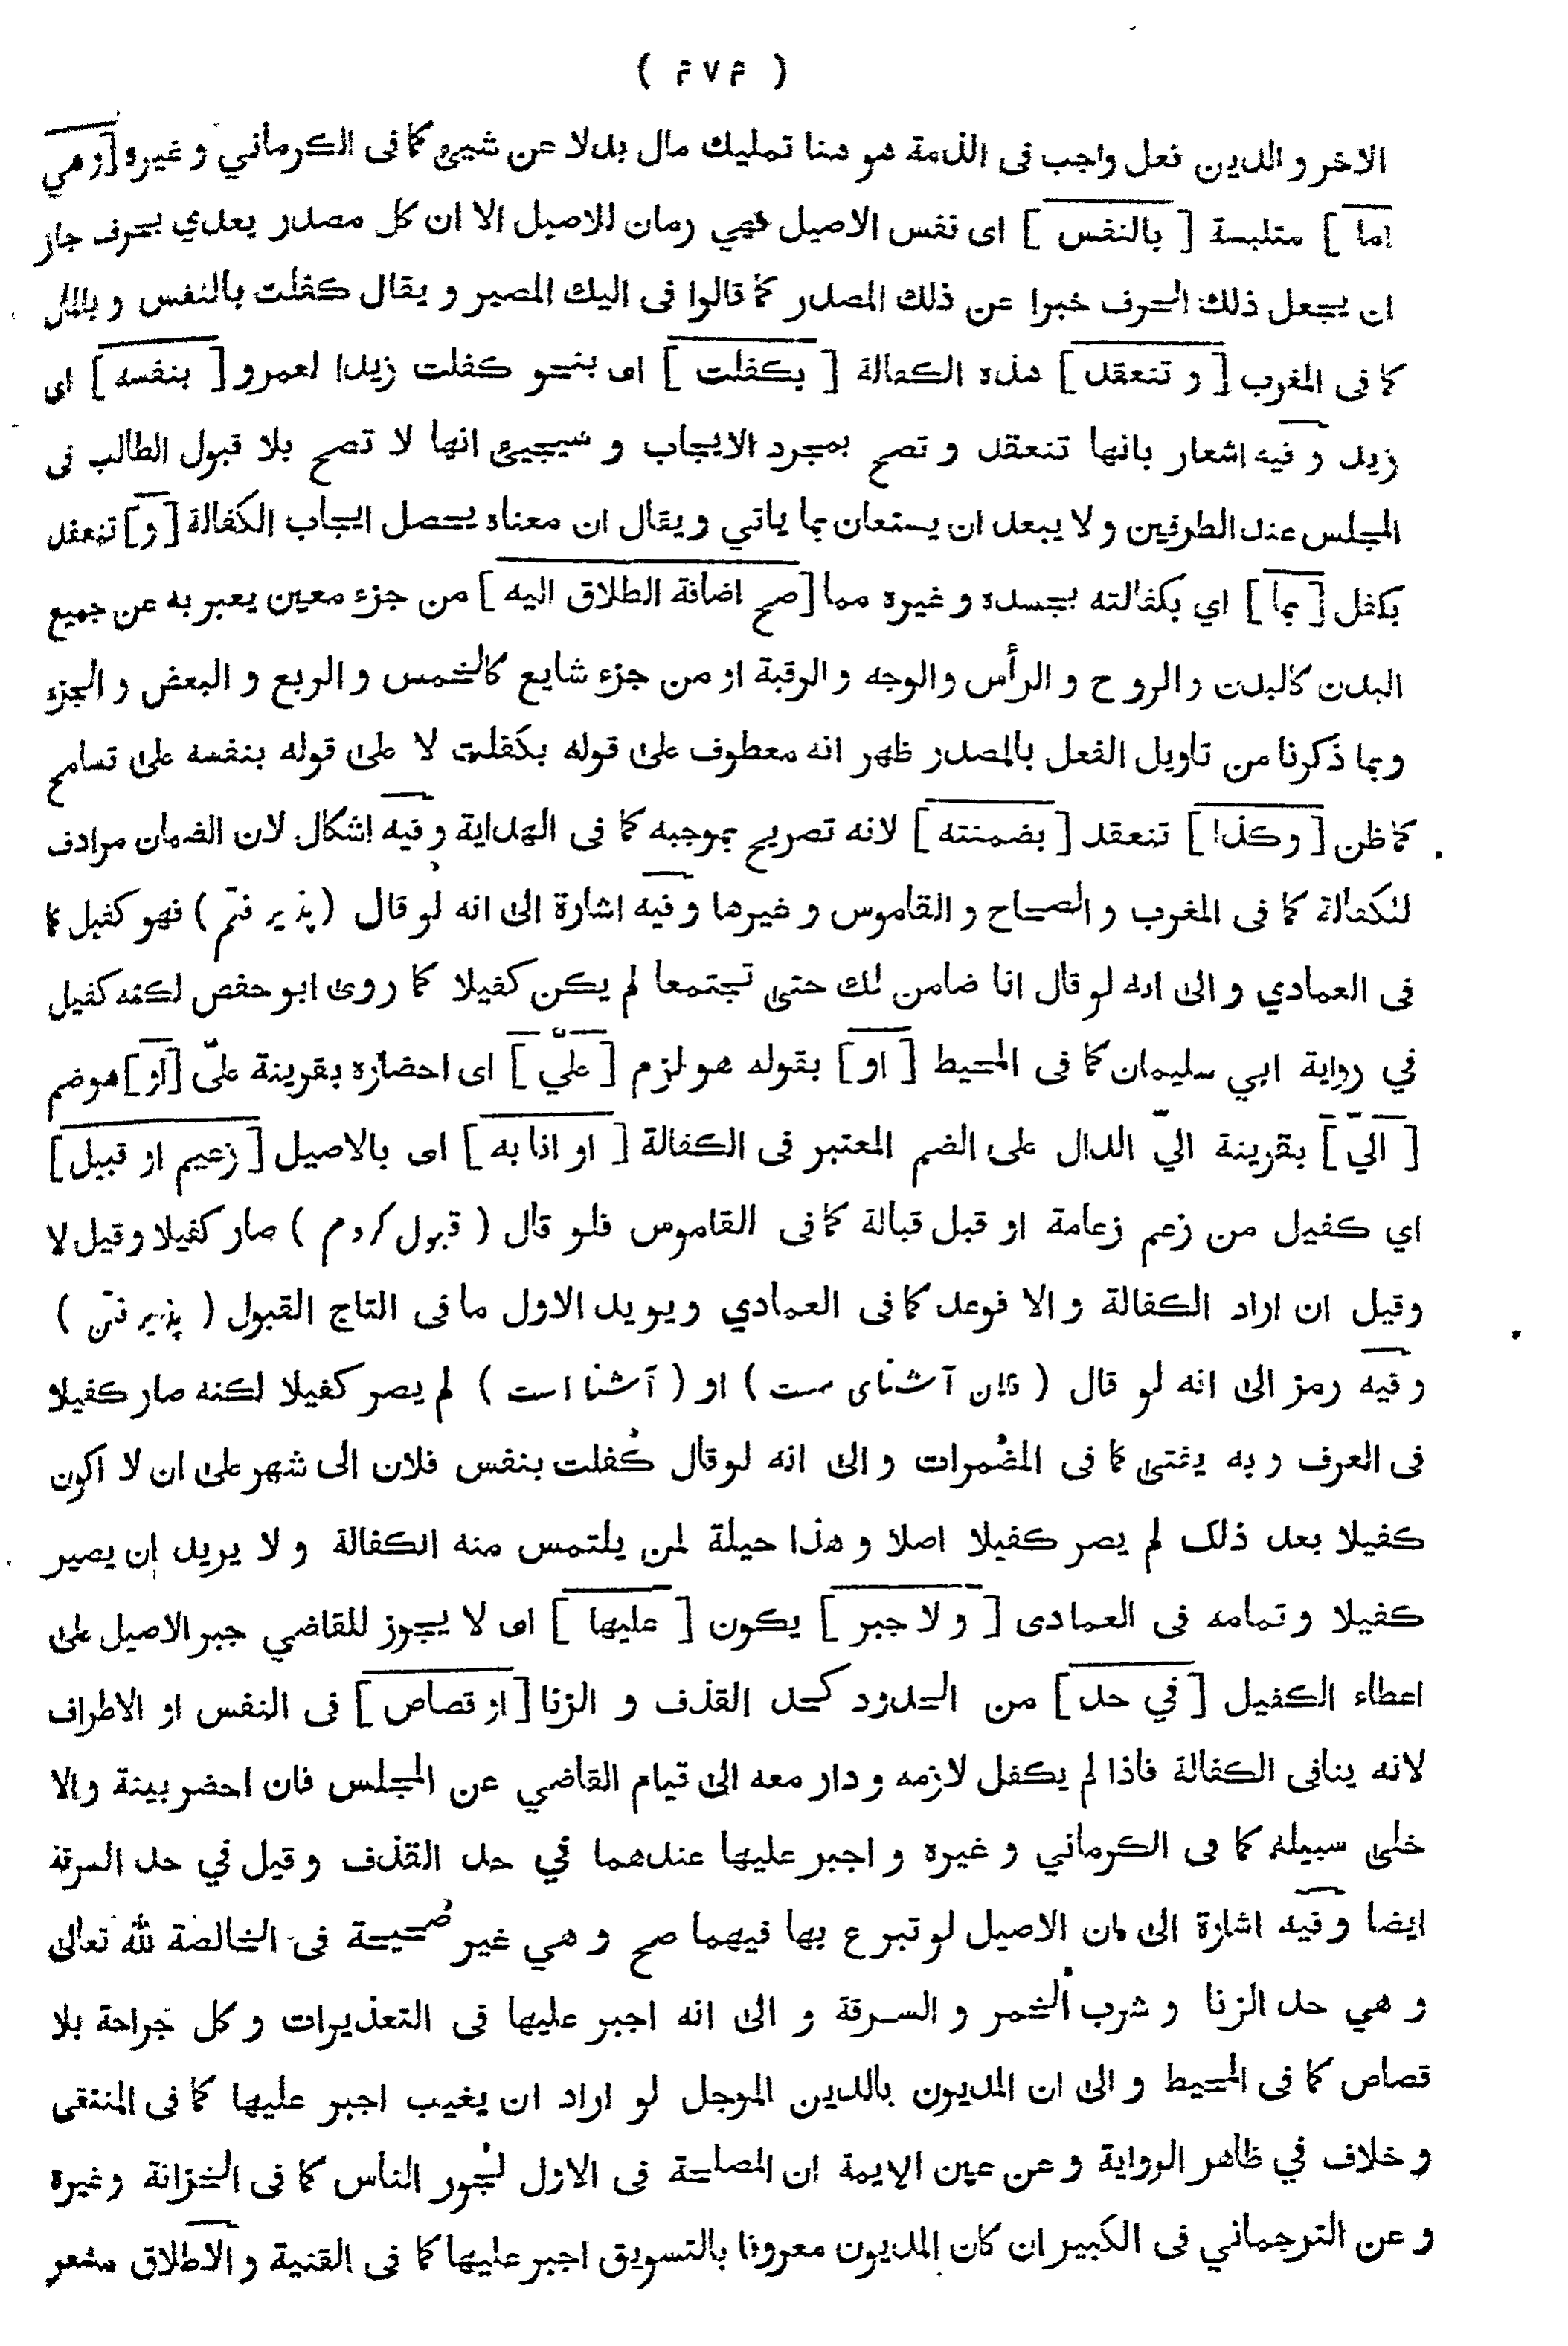 ( ۴۷۴ )
الاخر و الدين فعل واجب فى الذمة هو هنا تمليك مال بدلا عن شيئ كما فى الكرماني و غيره [وهي
اما ] متلبسة [ بالنفس ] اى نفس الاصيل فهي رمان للاصيل الا ان كل مصدر يعدي بحرف جاز
ان يجعل ذلك الحرف خبرا عن ذلك المصدر كما قالوا فى اليك المصير و يقال كفلت بالنفس و بالمال
كما فى المغرب [ و تنعقد ] هذه الكفالة [ بكفلت ] اى بنحو كفلت زيدا لعمرو [ بنفسه ] اى
زيد و فيه اشعار بانها تنعقد و تصح بمجرد الايجاب و سيجيئ انها لا تصح بلا قبول الطالب فى
المجلس عند الطرفين و لا يبعد ان يستعان بما ياتي و يقال ان معناه يحصل ايجاب الكفالة [و] تنعقد
بكفل [ بما ] اي بكفالته بجسده و غيره مما [صح اضافة الطلاق اليه ] من جزء معين يعبر به عن جميع
البدن كالبدن و الروح و الرأس والوجه و الرقبة او من جزء شايع كالخمس و الربع و البعض و الجزء
وبما ذكرنا من تاويل الفعل بالمصدر ظهر انه معطوف على قوله بكفلت لا على قوله بنفسه على تسامح
كما ظن [ وكذا ] تنعقد [ بضمنته ] لانه تصريح بموجبه كما فى الهداية و فيه اشكال لان الضمان مرادف
للكفالة كما فى المغرب و الصحاح و القاموس و غيرها و فيه اشارة الى انه لو قال ( پذير فتم ) فهو كفيل كما
فى العمادي و الى انه لو قال انا ضامن لك حتى تجتمعا لم يكن كفيلا كما روى ابو حفص لكنه كفيل
في رواية ابي سليمان كما فى المحيط [ او] بقوله هو لزم [ عليّ ] اى احضاره بقرينة عليّ [او] هو ضم
[ اليّ ] بقرينة اليّ الدال على الضم المعتبر فى الكفالة [ او انا به ] اى بالاصيل [ زعيم او قبيل]
اي كفيل من زعم زعامة او قبل قبالة كما فى القاموس فلو قال ( قبول كردم ) صار كفيلا و قيل لا
وقيل ان اراد الكفالة و الا فوعد كما فى العمادي و يويد الاول ما فى التاج القبول ( پذير فتن )
و فيه رمز الى انه لو قال ( فلان آشناى مست ) او ( آشنا است ) لم يصر كفيلا لكنه صار كفيلا
فى العرف و به يفتى كما فى المضمرات و الى انه لو قال كفلت بنفس فلان الى شهر على ان لا اكون
كفيلا بعد ذلك لم يصر كفيلا اصلا و هذا حيلة لمن يلتمس منه الكفالة و لا يريد ان يصير
كفيلا و تمامه فى العمادى [ و لا جبر ] يكون [ عليها ] اى لا يجوز للقاضي جبر الاصيل على
اعطاء الكفيل [ في حد ] من الحدود كحد القذف و الزنا [ او قصاص ] فى النفس او الاطراف
لانه ينافى الكفالة فاذا لم يكفل لازمه و دار معه الى قيام القاضي عن المجلس فان احضر بينة و الا
خلى سبيله كما فى الكرماني و غيره و اجبر عليها عندهما في حد القذف و قيل في حد السرقة
ايضا و فيه اشارة الى ان الاصيل لو تبرع بها فيهما صح و هي غير صحيحة فى الخالصة لله تعالى
و هي حد الزنا و شرب الخمر و السرقة و الى انه اجبر عليها فى التعذيرات و كل جراحة بلا
قصاص كما فى المحيط و الى ان المديون بالدين الموجل لو اراد ان يغيب اجبر عليها كما فى المنتقى
و خلاف في ظاهر الرواية و عن عين الايمة ان المصلحة فى الاول لجور الناس كما فى الخزانة و غيره
و عن الترجماني فى الكبير ان كان المديون معروفا بالتسويق اجبر عليها كما فى القنية و الاطلاق مشعر